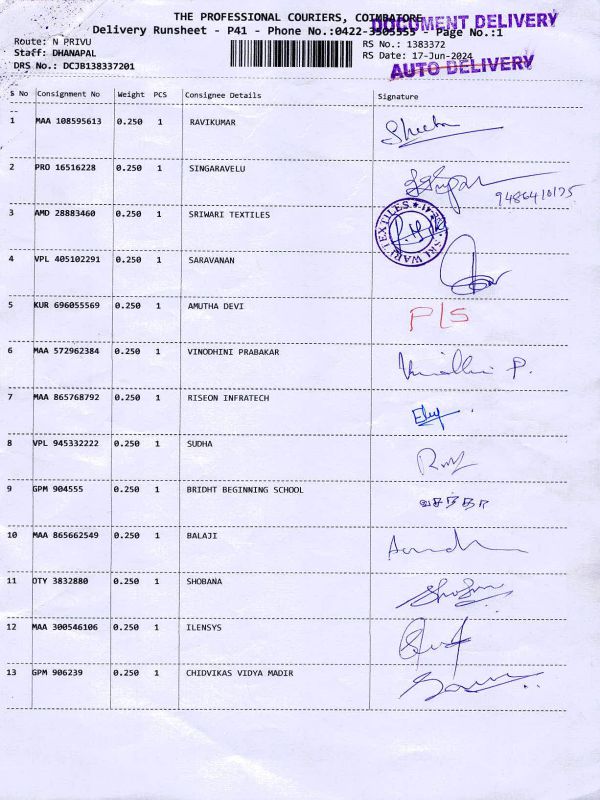 THE PROFESSIONAL COURIERS, COIMBATORE
DOCUMENT DELIVERY
Delivery Runsheet - P41 - Phone No.:0422-3505555 - Page No.:1
Route: N PRIVU
RS No.: 1383372
Staff: DHANAPAL
RS Date: 17-Jun-2024
DRS No.: DCJB138337201
AUTO DELIVERY
S No Consignment No Weight PCS Consignee Details Signature
1 MAA 108595613 0.250 1 RAVIKUMAR
2 PRO 16516228 0.250 1 SINGARAVELU
3 AMD 28883460 0.250 1 SRIWARI TEXTILES
SRI WARI TEXTILES
4 VPL 405102291 0.250 1 SARAVANAN
5 KUR 696055569 0.250 1 AMUTHA DEVI P/S
6 MAA 572962384 0.250 1 VINODHINI PRABAKAR
7 MAA 865768792 0.250 1 RISEON INFRATECH
8 VPL 945332222 0.250 1 SUDHA
9 GPM 904555 0.250 1 BRIDHT BEGINNING SCHOOL
10 MAA 865662549 0.250 1 BALAJI
11 OTY 3832880 0.250 1 SHOBANA
12 MAA 300546106 0.250 1 ILENSYS
13 GPM 906239 0.250 1 CHIDVIKAS VIDYA MADIR